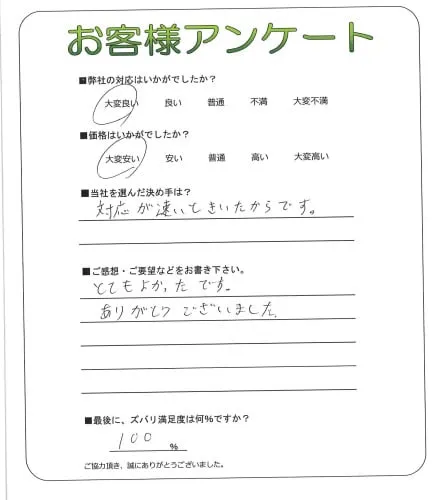 お客様アンケート
■弊社の対応はいかがでしたか?
大変良い 良い 普通 不満 大変不満
■価格はいかがでしたか?
大変安い 安い 普通 高い 大変高い
■当社を選んだ決め手は?
対応が速いときいたからです。
■ご感想・ご要望などをお書き下さい。
とてもよかったです。
ありがとうございました。
■最後に、ズバリ満足度は何%ですか?
100 %
ご協力頂き、誠にありがとうございました。